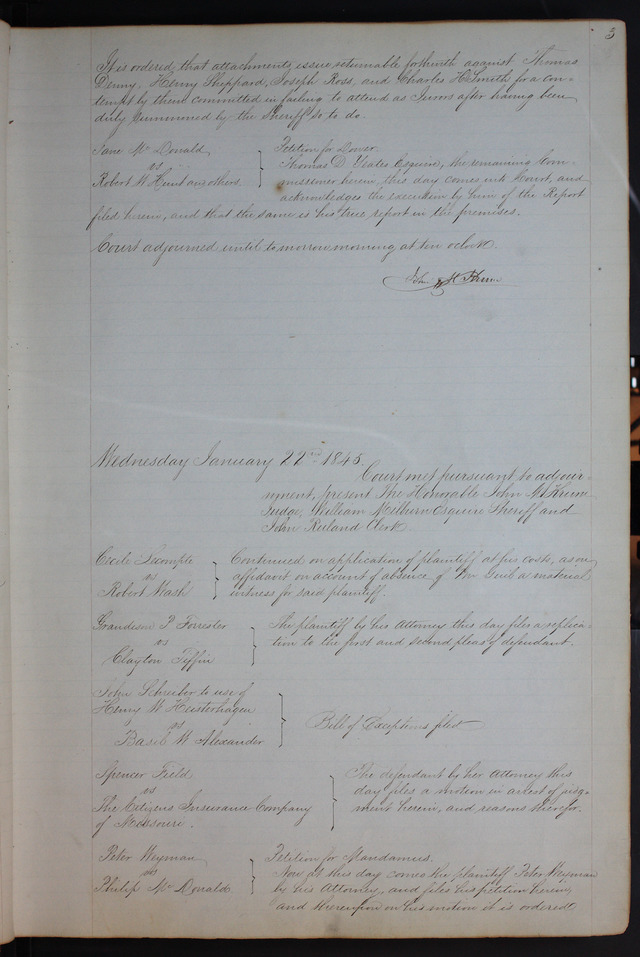 3
It is ordered that attachments issue returnable forthwith against Thomas
Denny, Henry Sheppard, Joseph Ross, and Charles H Smith for a con-
tempt by them committed in failing to attend as Jurors after having been
duly summoned by the Sheriff so to do.
Jane Mc Donald
vs
Robert W Hunt and others
Petition for Dower
Thomas D Yeates Esquire, the remaining Com-
missioner herein this day comes into Court, and
acknowledges the execution by him of the Report
filed herein, and that the same is his true report in the premises.
Court adjourned until tomorrow morning at ten oclock.
John M Krum
Wednesday January 22nd 1845.
Court met pursuant to adjour-
nment, present The Honorable John M Krum
Judge, William Milburn Esquire Sheriff and
John Ruland Clerk
Cecile Lecompte
vs
Robert Wash
Continued on application of plaintiff at his costs, as on
affidavit on account of absence of a material
witness for said plaintiff.
Grandison P Forrester
vs
Clayton Tiffin
The plaintiff by his Attorney this day files a replica-
tion to the first and second pleas of defendant.
John Schreiber to use of
Henry W Heisterhagen
vs
Basil W Alexander
Bill of Exceptions filed
Spencer Field
vs
The Citizens Insurance Company
of Missouri.
The defendant by her Attorney this
day files a motion in arrest of judg-
ment herein, and reasons therefor.
Peter Weyman
vs
Philip Mc Donald
Petition for Mandamus.
Now at this day comes the plaintiff Peter Weyman
by his Attorney, and files his petition herein,
and thereupon on his motion it is ordered